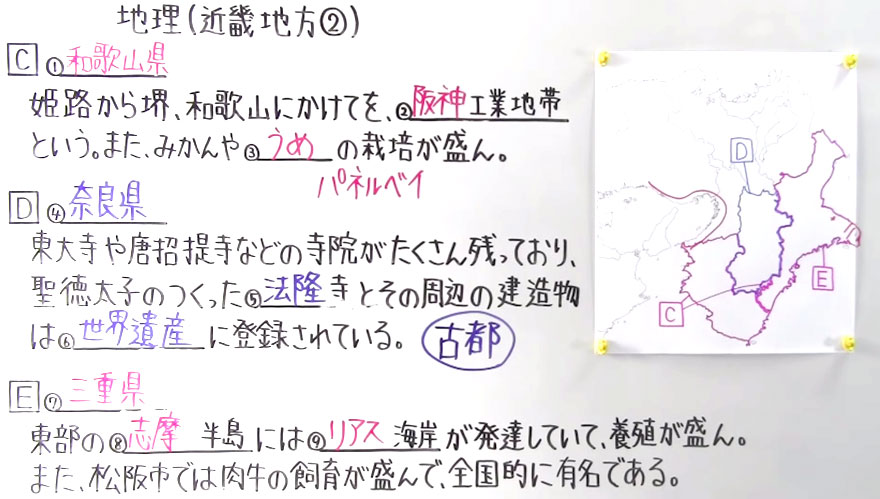 地理(近畿地方②)
C ①和歌山県
姫路から堺、和歌山にかけてを、②阪神工業地帯
という。また、みかんや③うめ の栽培が盛ん。
パネルベイ
D ④奈良県
東大寺や唐招提寺などの寺院がたくさん残っており、
聖徳太子のつくった⑤法隆寺とその周辺の建造物
は⑥世界遺産 に登録されている。 古都
E ⑦三重県
東部の⑧志摩 半島には⑨リアス 海岸が発達していて、養殖が盛ん。
また、松阪市では肉牛の飼育が盛んで、全国的に有名である。
D
E
C